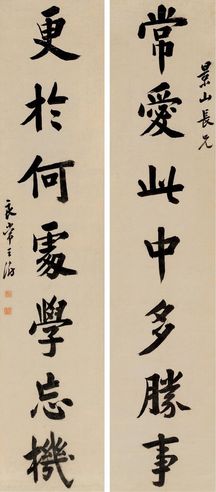 景山長兄
常愛此中多勝事
更於何處學忘機
良常王澍